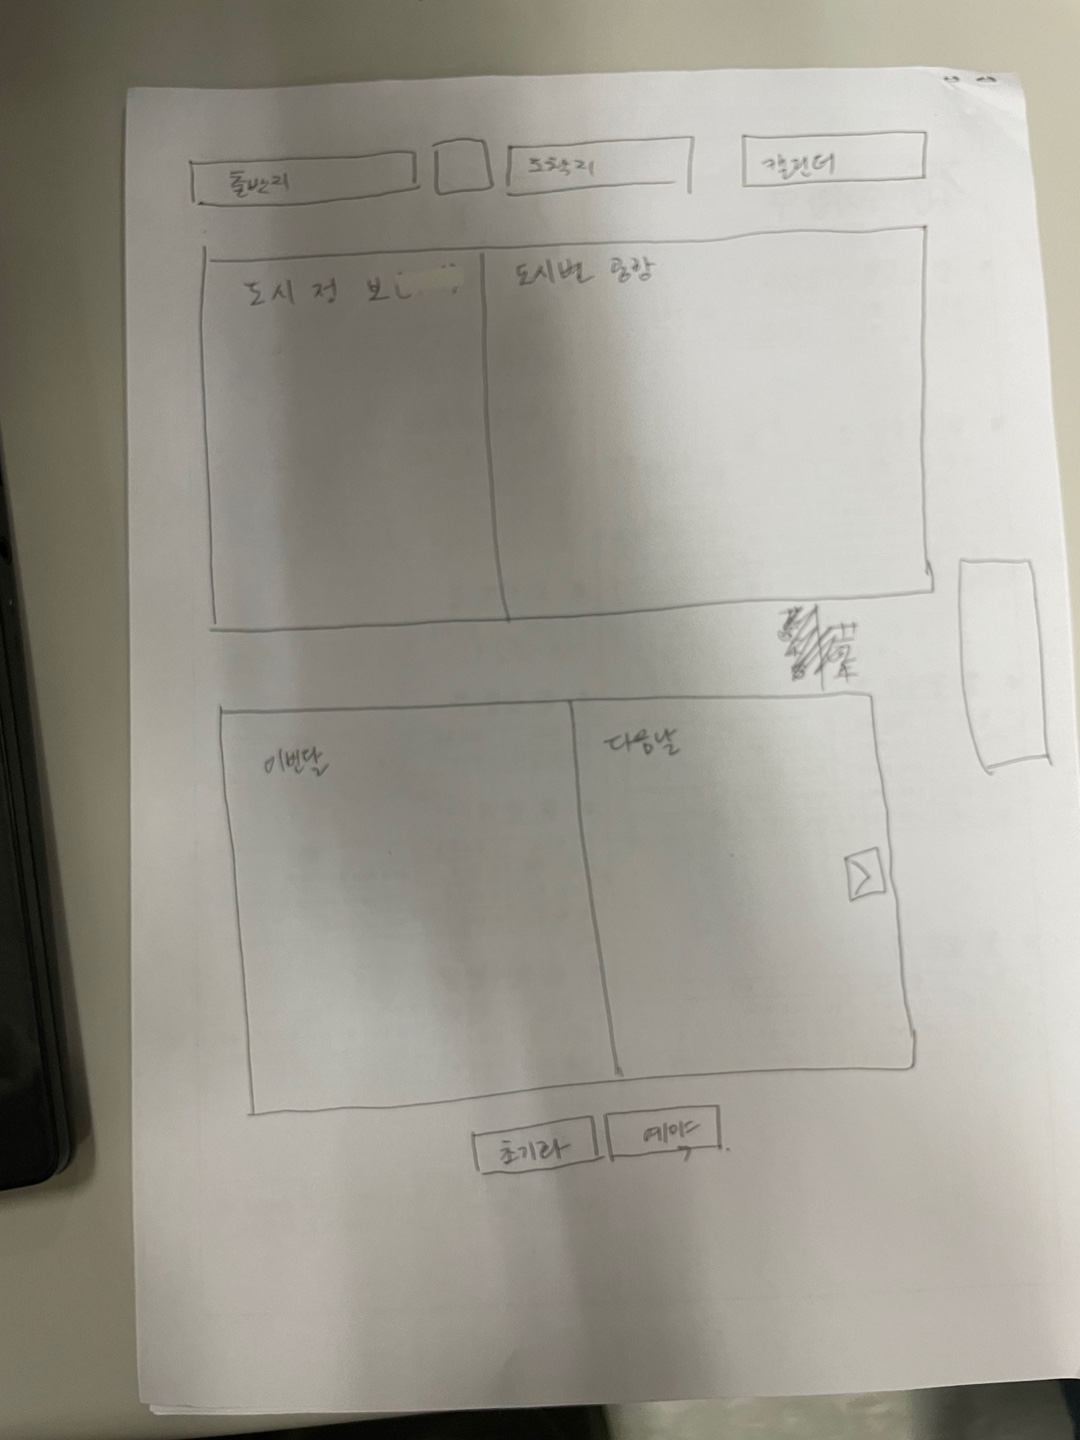 출발지
도착지
캘린더
도시 정 보
도시별 공항
이번달
다음날
초기화
예약